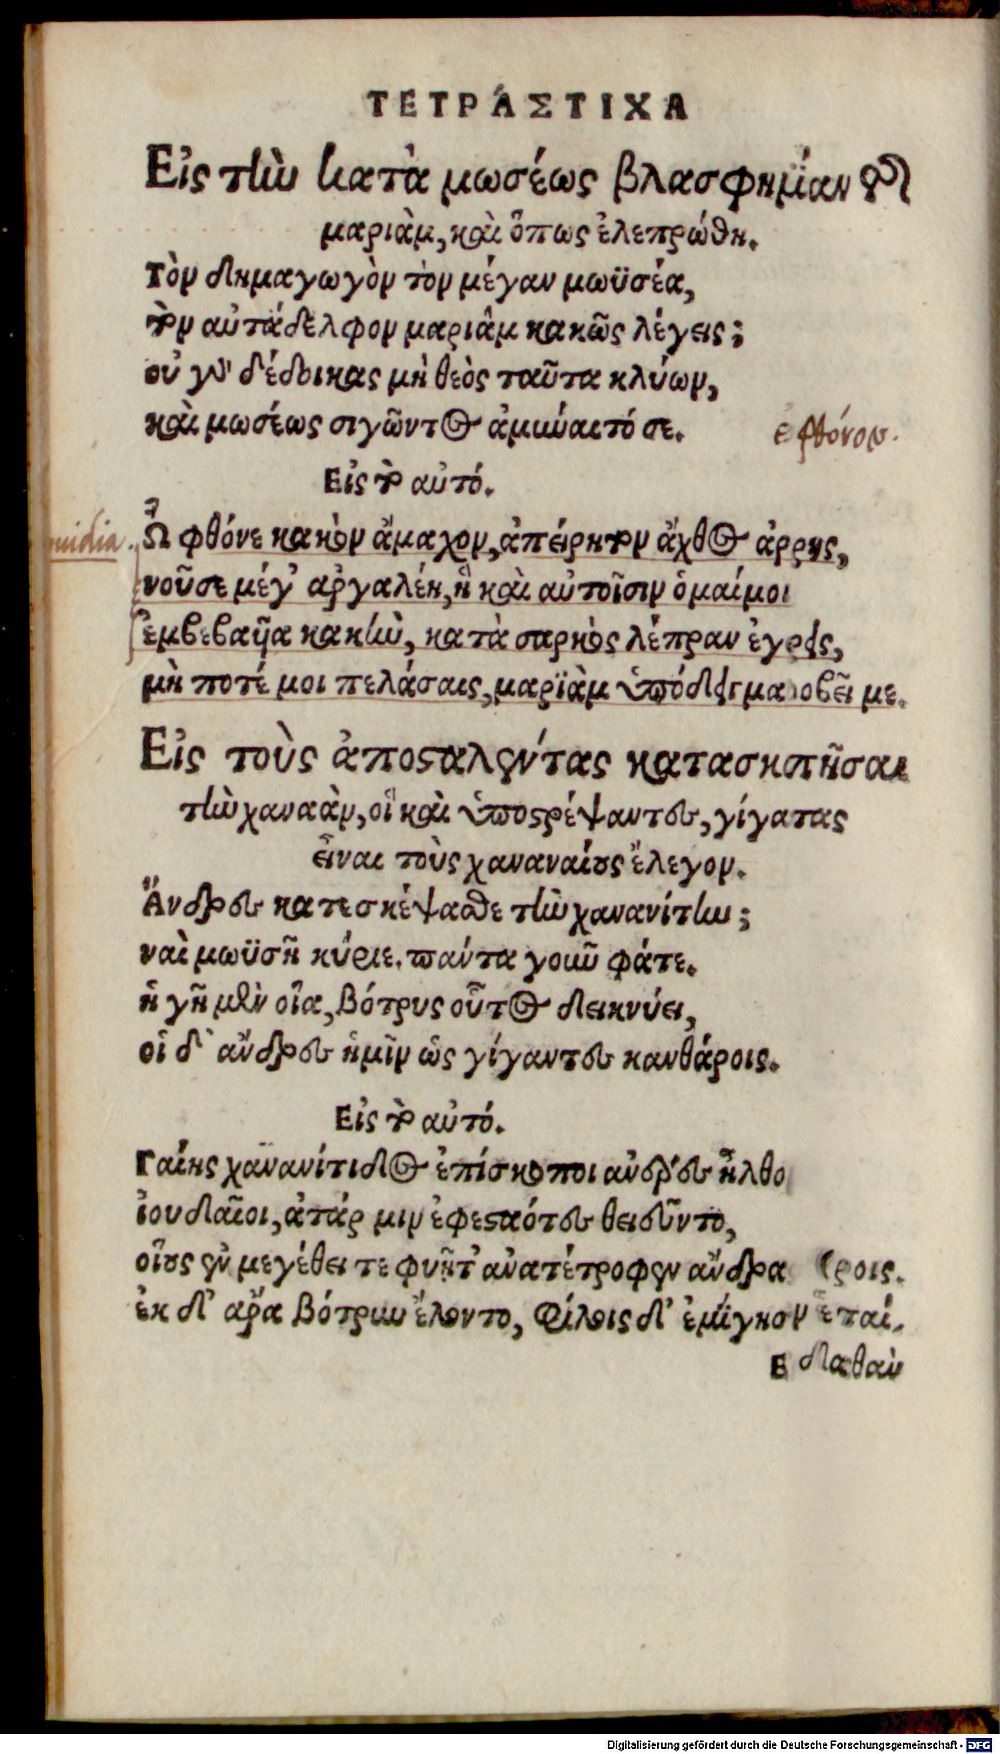 ΤΕΤΡΆΣΤΙΧΑ
Εἰς τὴν κατὰ μωσέως βλασφημίαν τῆς
μαριὰμ, καὶ ὅπως ἐλεπρώθη.
Τὸν δημαγωγὸν τὸν μέγαν μωϋσέα,
τὸν αὐτάδελφον μαριὰμ κακῶς λέγεις;
οὐ γὰρ δέδοικας μὴ θεὸς ταῦτα κλύων,
καὶ μωσέως σιγῶντος ἀμυναιτό σε.
φθόνον.
Εἰς τὸ αὐτό.
Ὦ φθόνε κακὸν ἄμαχον, ἀπείρητον ἄχθος ἀρρης,
νοῦσε μέγ' ἀργαλέη, ἣ καὶ αὐτοῖσιν ὁμαίμοι
ἐμβεβαῆα κακὴν, κατὰ σαρκὸς λέπραν ἐγρεῖς,
μὴ ποτέ μοι πελάσαις, μαρϊὰμ ὑπόδειγμα με.
Εἰς τοὺς ἀποσταλέντας κατασκοπῆσαι
τὴν χαναὰν, οἳ καὶ ὑποστρέψαντες, γίγατας
εἶναι τοὺς χαναναίους ἔλεγον.
Ἄνδρες κατεσκέψασθε τὴν χανανίτην;
ναὶ μωϋσῆ κύριε. πάντα γοιῦ φάτε.
ἡ γῆ μὲν οἵα, βότρυς οὗτος δεικνύει,
οἱ δ' ἄνδρες ἡμῖν ὡς γίγαντες κανθάροις.
Εἰς τὸ αὐτό.
Γαίης χανανίτιδος ἐπίσκοποι ἄνδρες ἦλθο
ἰουδαῖοι, ἀτάρ μιν ἐφεσταότες θειεῦντο,
οἵους ἐν μεγέθει τε φυῇ τ' ἀνατέτροφεν ἄνδρα (ροις.
ἐκ δ' ἄρα βότρυν ἕλοντο, φίλοις δ' ἐμίγησαν ἑταί.
Ε διαθαν